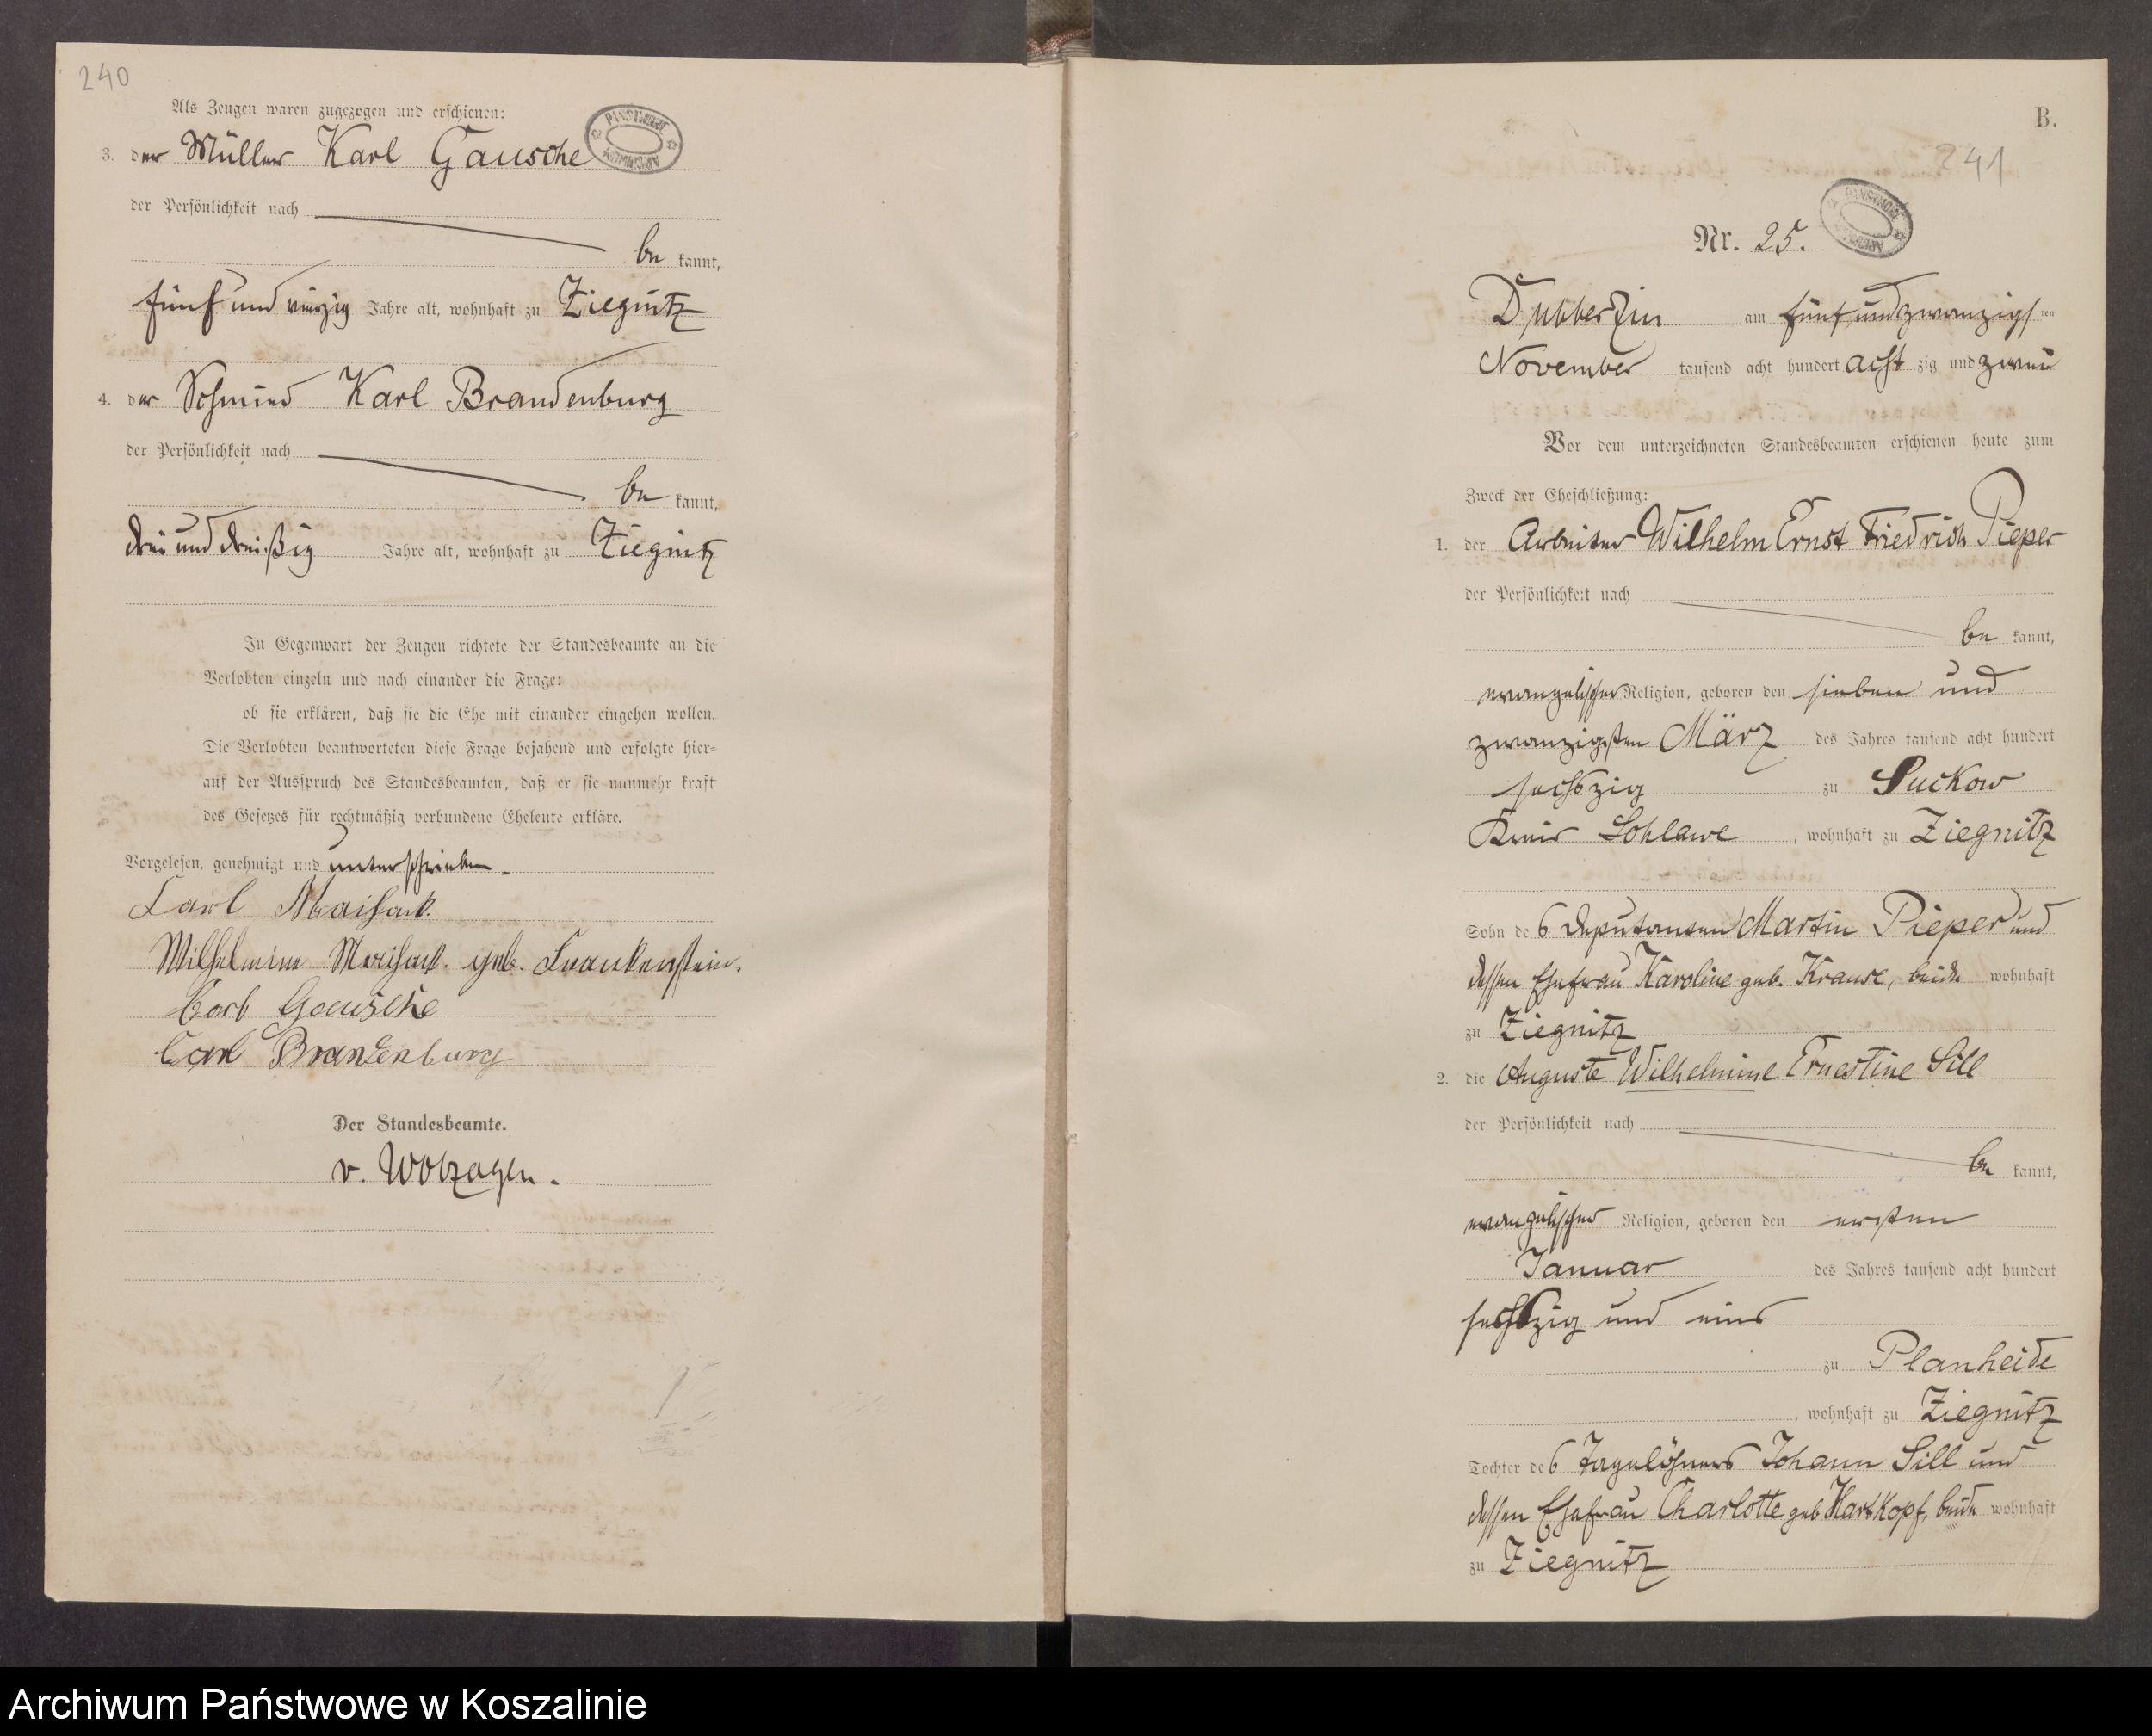 240
Als Zeugen waren zugezogen und erschienen:
3. der Müller Karl Gausche
der Persönlichkeit nach
be kannt,
fünf und vierzig Jahre alt, wohnhaft zu Ziegnitz
4. der Schmied Karl Brandenburg
der Persönlichkeit nach
be kannt,
drei und dreißig Jahre alt, wohnhaft zu Ziegnitz
In Gegenwart der Zeugen richtete der Standesbeamte an die
Verlobten einzeln und nach einander die Frage:
ob sie erklären, daß sie die Ehe mit einander eingehen wollen.
Die Verlobten beantworteten diese Frage bejahend und erfolgte hier-
auf der Ausspruch des Standesbeamten, daß er sie nunmehr kraft
des Gesetzes für rechtmäßig verbundene Eheleute erkläre.
Vorgelesen, genehmigt und unterschrieben.
Carl
Wilhelmine geb. Frankenstein.
Carl Gausche
Carl Brandenburg
Der Standesbeamte.
v. Wolzogen.
B.
241
Nr. 25.
Dubberzin am fünf und zwanzigs ten
November tausend acht hundert acht zig und zwei
Vor dem unterzeichneten Standesbeamten erschienen heute zum
Zweck der Eheschließung:
1. der Arbeiter Wilhelm Ernst Friedrich Pieper
der Persönlichkeit nach
be kannt,
evangelischer Religion, geboren den sieben und
zwanzigsten März des Jahres tausend acht hundert
sechszig zu Suckow
Kreis Schlawe, wohnhaft zu Ziegnitz
Sohn des Deputanten Martin Pieper und
dessen Ehefrau Karoline geb. Krause, beide wohnhaft
zu Ziegnitz
2. die Auguste Wilhelmine Ernestine Sill
der Persönlichkeit nach
be kannt,
evangelischer Religion, geboren den ersten
Januar des Jahres tausend acht hundert
sechszig und eins
zu Planheide
, wohnhaft zu Ziegnitz
Tochter des Tagelöhners Johann Sill und
dessen Ehefrau Charlotte geb Hartkopf, beide wohnhaft
zu Ziegnitz
Archiwum Państwowe w Koszalinie